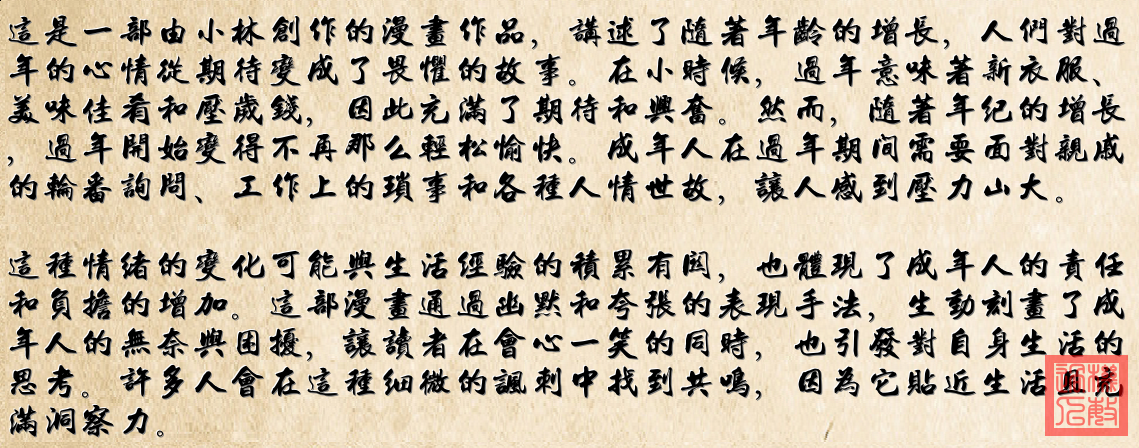 這是一部由小林創作的漫畫作品，講述了隨著年齡的增長，人們對過
年的心情從期待變成了畏懼的故事。在小時候，過年意味著新衣服、
美味佳肴和壓歲錢，因此充滿了期待和興奮。然而，隨著年紀的增長
，過年開始變得不再那么輕松愉快。成年人在過年期间需要面對親戚
的輪番詢問、工作上的瑣事和各種人情世故，讓人感到壓力山大。
這種情緒的變化可能與生活經驗的積累有関，也體現了成年人的責任
和負擔的增加。這部漫畫通過幽默和夸張的表現手法，生動刻畫了成
年人的無奈與困擾，讓讀者在會心一笑的同時，也引發對自身生活的
思考。許多人會在這種細微的諷刺中找到共鳴，因為它貼近生活且充
滿洞察力。